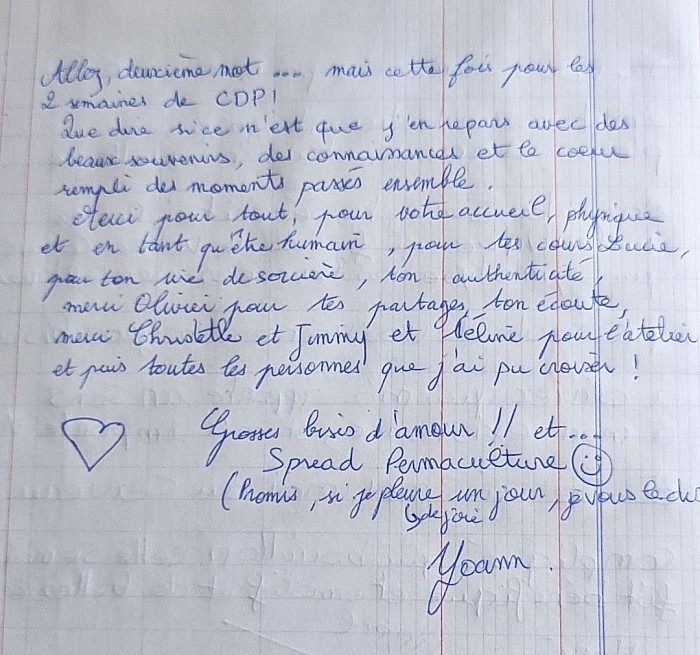 Allez, deuxième mot .... mais cette fois pour les
2 semaines de CDP!
Que dire si ce n'est que j'en repars avec des
beaux souvenirs, des connaissances et le coeur
rempli des moments passés ensemble.
Merci pour tout, pour votre accueil, physique
et en tant qu'être humain, pour tes cours Lucie,
pour ton rire de sorcière, ton authenticité,
merci Olivier pour tes partages, ton écoute,
merci Christelle et Jimmy et Céline pour l'atelier
et puis toutes les personnes que j'ai pu croiser !
Grosses bisis d'amour !! et...
Spread Permaculture
(Promis, si je pleure un jour, je vous le dis
↳ de joie
Yoann.